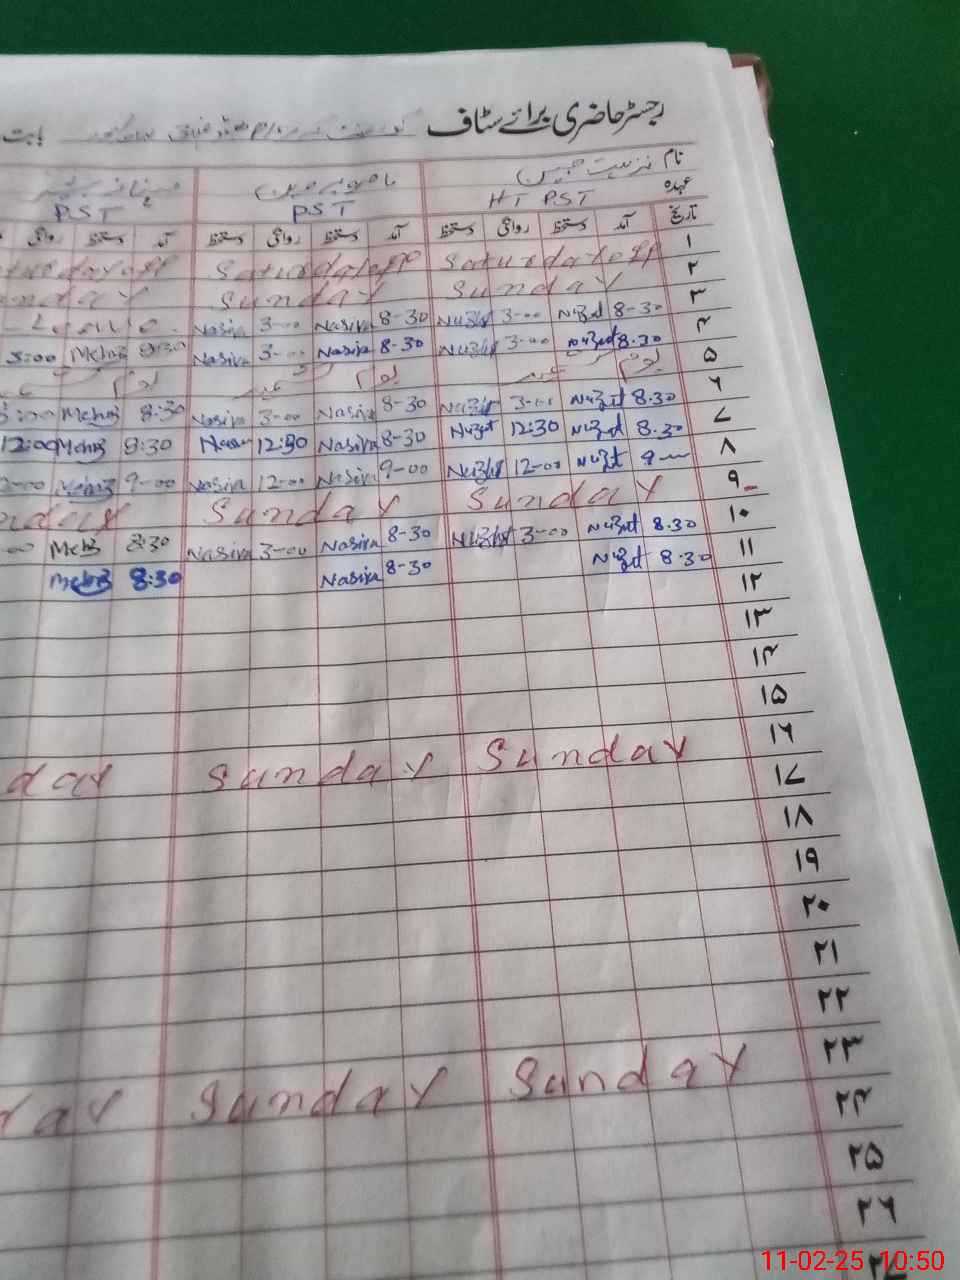 رجسٹر حاضری برائے سٹاف بابت
نام نزہت جبیں
عہدہ HT PST PST PST
تاریخ آمد دستخط روانگی دستخط آمد دستخط روانگی دستخط آمد دستخط روانگی
۱ Saturday off Saturday off
۲ Sunday Sunday
۳ 8-30 Nuzhat 3-00 Nuzhat 8-30 Nasira 3-00 Nasira Leave
۴ 8.30 Nuzhat 3-00 Nuzhat 8-30 Nasira 3-00 Nasira 8:30 Mehnaz 3:00
۵ یوم یوم یوم
۶ 8.30 Nuzhat 3-00 Nuzhat 8-30 Nasira 3-00 Nasira 8:30 Mehnaz 3:00
۷ 8.30 Nuzhat 12:30 Nuzhat 8-30 Nasira 12:30 Nasira 8:30 Mehnaz 12:00
۸ 9-00 Nuzhat 12-00 Nuzhat 9-00 Nasira 12-00 Nasira 9-00 Mehnaz
۹ Sunday Sunday
۱۰ 8.30 Nuzhat 3-00 Nuzhat 8-30 Nasira 3-00 Nasira 8:30 Mehnaz
۱۱ 8.30 Nuzhat 8-30 Nasira 8:30 Mehnaz
۱۲
۱۳
۱۴
۱۵
۱۶ Sunday Sunday day
۱۷
۱۸
۱۹
۲۰
۲۱
۲۲
۲۳ Sunday Sunday day
۲۴
۲۵
۲۶
11-02-25 10:50